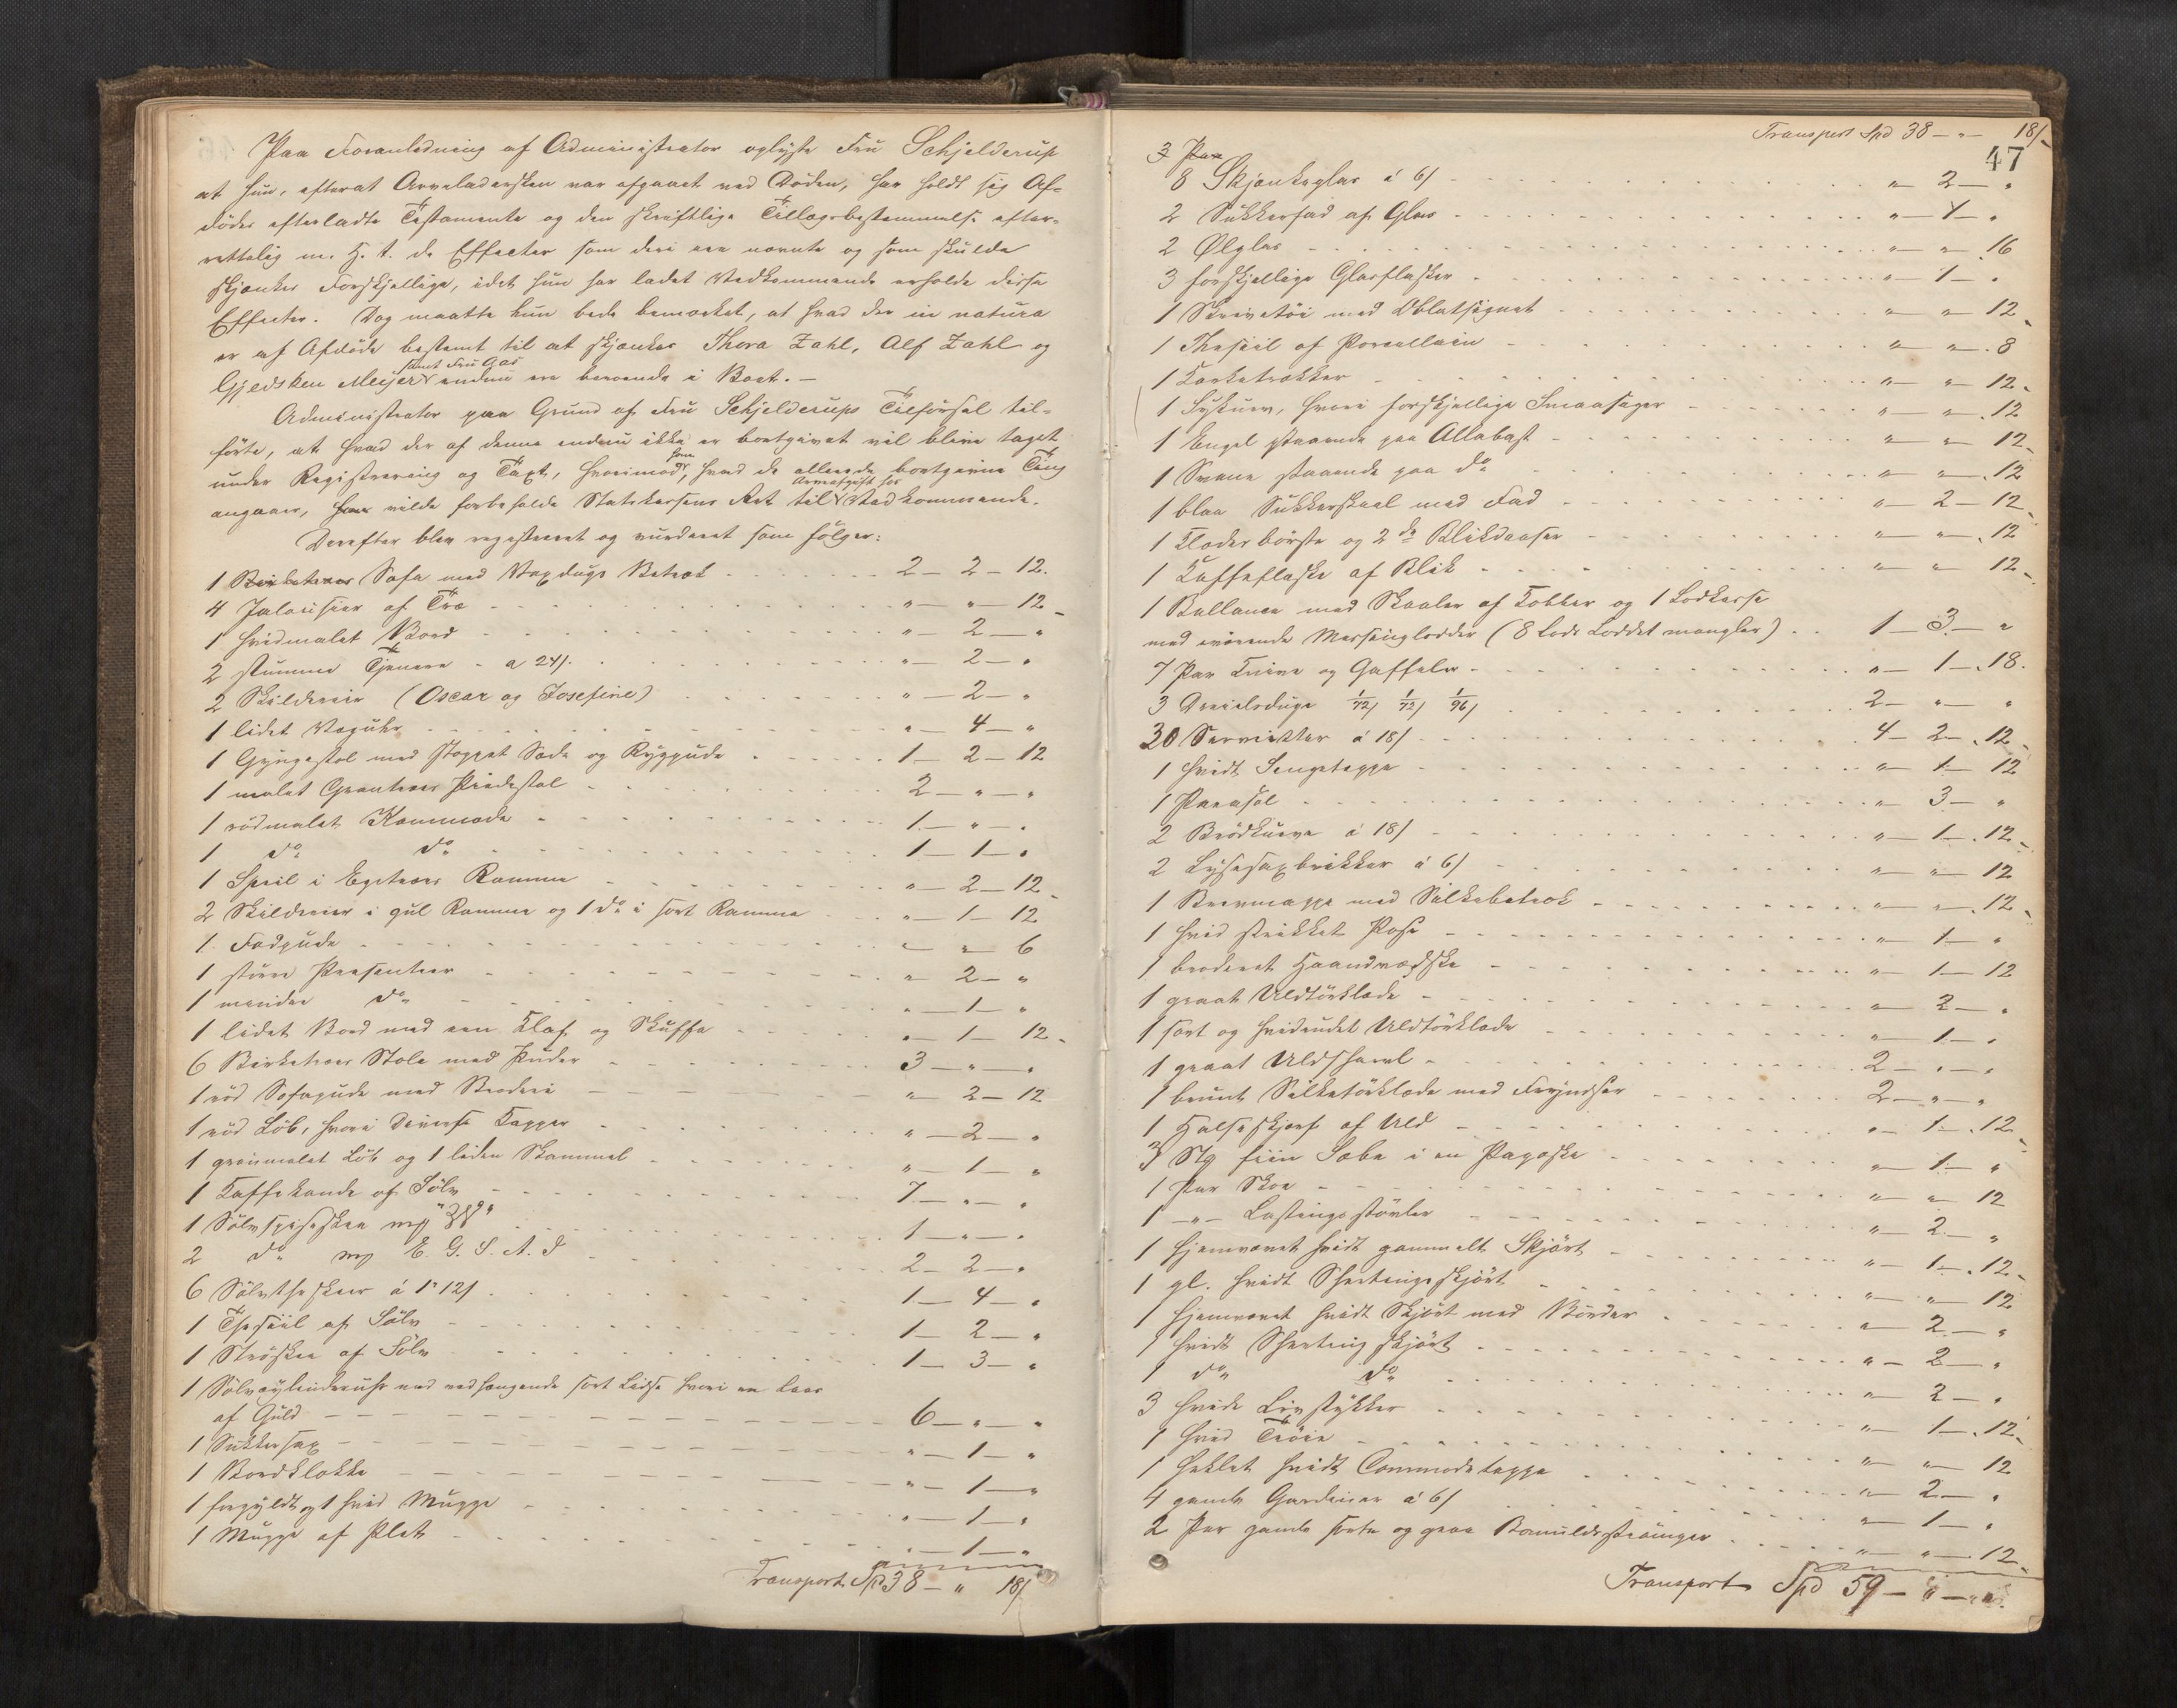 Paa Foranledning af Administrator oplyste Fru Schjelderup
at hun, efterat Arveladersken var afgaaet ved Döden, har holdt sig Af-
dödes efterladte Testamente og den skriftlige Tillægsbestemmelse efter-
rettelig m. H. t. de Effecter som deri ere nævnte og som skulde
skjænkes Forskjellige, idet hun har ladet Vedkommende erholde disse
Effecter. Dog maatte hun bede bemærket, at hvad der in natura
er af Afdöde bestemt til at skjænkes Thora Zahl, Alf Zahl og
Gjedsken Meijer samt Fru Gas endnu ere beroende i Boet. —
Administrator paa Grund af Fru Schjelderups Tilförsel til-
förte, at hvad der af denne endnu ikke er bortgivet vil blive taget
under Registrering og Taxt, hvorimod han, hvad de allerede bortgivne Ting
angaaer, vilde forbeholde Statskassens Ret til Arveafgift hos Vedkommende.
Derefter blev registreret og vurderet som fölger:
1 Birketræes Sofa med Voxdugs Betræk 2 — 2 — 12.
4 Jalousier af Træ " — " — 12
1 hvidmalet Bord " — 2 — "
2 stumme Tjenere a 24/. " — 2 — "
2 Skilderier (Oscar og Josefine) " — 2 — "
1 lidet Væguhr " — 4 — "
1 Gyngestol med stoppet Sæde og Rygpude 1 — 2 — 12
1 malet Grantræes Piedestal 2 — " — "
1 rödmalet Kommode 1 — " — "
1 do do 1 — 1 — "
1 Speil i Egetræes Ramme " — 2 — 12
2 Skilderier i gul Ramme og 1 do i sort Ramme " — 1 — 12
1 Fodpude " — " — 6
1 större Præsenteer " — 2 — "
1 mindre do " — 1 — "
1 lidet Bord med een Klaf og Skuffe " — 1 — 12
6 Birketræes Stole med Puder 3 — " — "
1 röd Sofapude med Broderi " — 2 — 12
1 röd Löb, hvori diverse Kapper " — 2 — "
1 grönmalet Löb og 1 liden Skammel " — 1 — "
1 Kaffekande af Sölv 7 — " — "
1 Sölvspiseskee mrkt 1 — " — "
2 do mrkt E. G. S. A. D 2 — 2 — "
6 Sölvtheskeer á 1" 12/ 1 — 4 — "
1 Thesiil af Sölv 1 — 2 — "
1 Ströskee af Sölv 1 — 3 — "
1 Sölvcylinderuhr med vedhængende sort Lidse hvori en Laas
af Guld 6 — " — "
1 Sukkersax " — 1 — "
1 Bordklokke " — 1 — "
1 forgyldt og 1 hvid Mugge " — 1 — "
1 Mugge af Plet " — 1 — "
Transport Spd 38 — " 18/
Transport Spd 38 — " — 18/
47
3 Par
8 Skjænkeglas á 6/ " — 2 — "
2 Sukkerfad af Glas " — 1 — "
2 Ølglas " — " — 16
3 forskjellige Glasflasker " — 1 — "
1 Skrivetöi med Oblatsignet " — " — 12
1 Thesiil af Porcellain " — " — 8
1 Korketrækker " — " — 12
1 Sykurv, hvori forskjellige Smaasager " — " — 12
1 Engel staaende paa Allabast " — " — 12
1 Svane staaende paa do " — " — 12
1 blaa Sukkerskaal med Fad " — 2 — 12
1 Klædesbörste og 2de Blikdaaser " — " — 12
1 Kaffeflaske af Blik " — " — 12
1 Ballance med Skaaler af Kobber og 1 Lodkasse
med værende Messinglodder (8 Lods Loddet mangler) 1 — 3 — "
7 Par Knive og Gaffeler " — 1 — 18.
3 Dreielsduge 1/72/ 1/72/ 1/96/ 2 — " — "
30 Servietter á 18/ 4 — 2 — 12
1 hvidt Sengeteppe " — 1 — 12
1 Parasol " — 3 — "
2 Brödkurve á 18/ " — 1 — 12
2 Lysesaxbrikker á 6/ " — " — 12
1 Brevmappe med Silkebetræk " — " — 12
1 hvid strikket Pose " — 1 — "
1 broderet Haandvædske " — 1 — 12
1 graat Uldtörklæde " — 2 — "
1 sort og hvidrudet Uldtörklæde " — 1 — "
1 graat Uldshawl 2 — " — "
1 brunt Silketörklæde med Fryndser 2 — " — "
1 Halsskjærf af Uld " — 1 — 12
3 Stg fiin Sæbe i en Papæske " — 1 — "
1 Par Skoe " — " — 12
1 — " — Lastingsstövler " — 2 — "
1 hjemvævet hvidt gammelt Skjört " — 1 — 12
1 gl. hvidt Shertingsskjört " — " — 12
1 hjemvævet hvidt Skjört med Border " — 2 — "
1 hvidt Shertingskjört " — 2 — "
1 do do " — 2 — "
3 hvide Livstykker " — 1 — 12
1 hvid Tröie " — " — 12
1 heklet hvidt Commodeteppe " — 2 — "
4 gamle Gardiner á 6/ " — 1 — "
2 Par gamle sorte og graa Bomuldsströmper " — " — 12
Transport Spd 59 — " — "